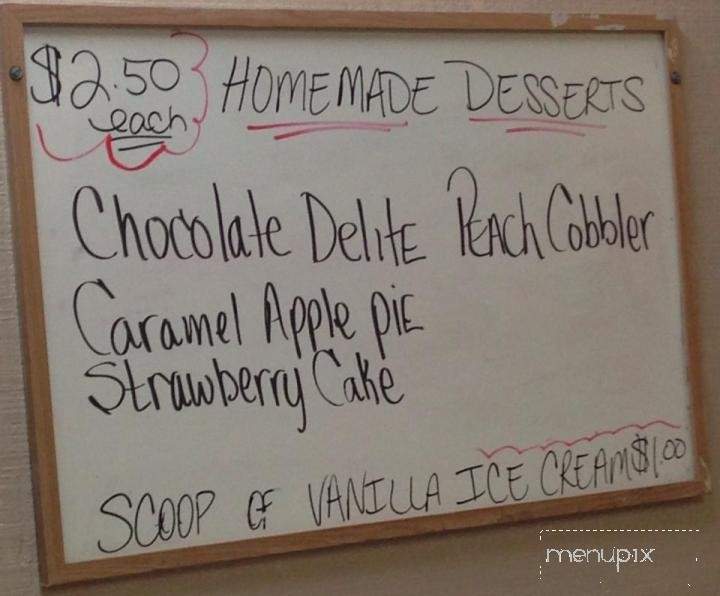 $2.50 each HOMEMADE DESSERTS
Chocolate DelitE PEACh Cobbler
Caramel Apple piE
Strawberry Cake
SCOOP OF VANILLA ICE CREAM $1.00
menupix